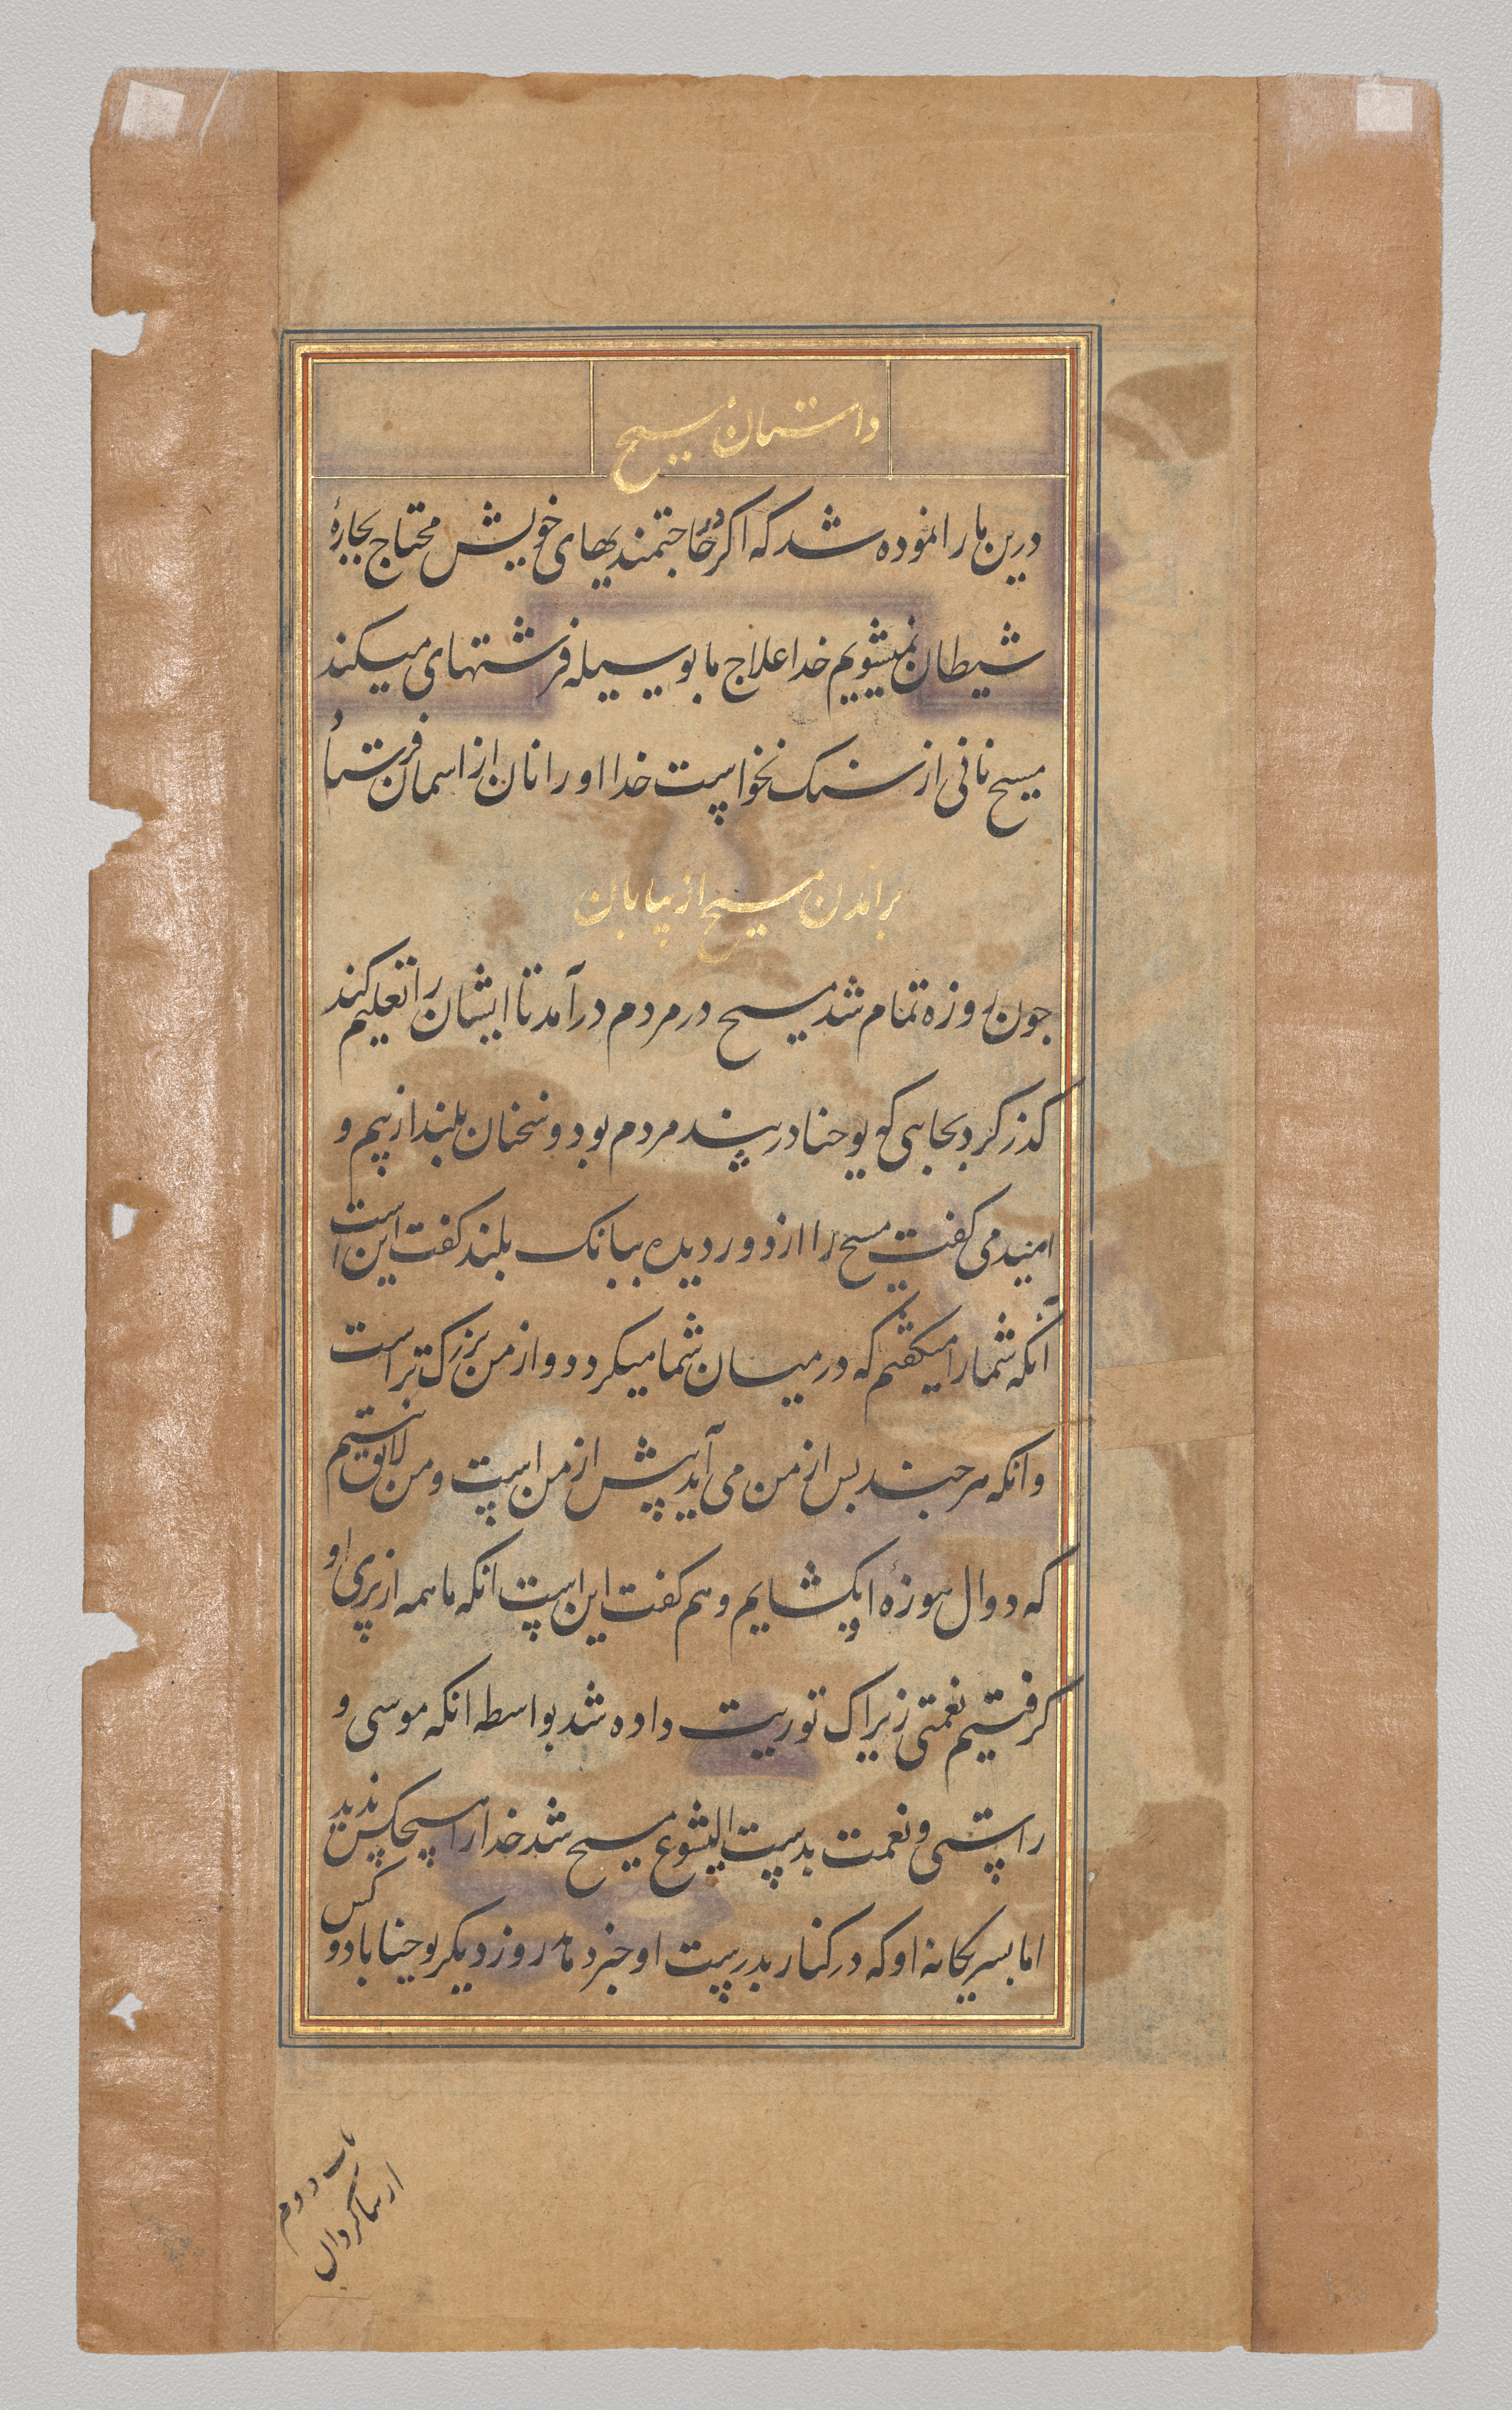 داستان مسیح
درین ما را نموده شد که اکر در حاجتمندیهای خویش محتاج بچارۀ
شیطان نمیشویم خدا علاج ما بوسیله فرشتهای میکند
مسیح نانی از سنک نخواست خدا او را نان از اسمان فرستاد
برامدن مسیح از بیابان
جون روزه تمام شد مسیح در مردم درآمد تا ایشان را تعلیم کند
کذر کرد بجایی که یوحنا در پند مردم بود و سخنان بلند از بیم و
امید می کفت مسیح را از دور دیده ببانک بلند کفت این است
آنکه شما را میکفتم که در میان شما میکردد و از من بزرک تر است
و انکه هر جند بس از من می آید پیش از من است و من لایق نیستم
که دوال موزۀ او بکشایم و هم کفت این است انکه ما همه از پری او
کرفتیم نعمتی زیراک توریت داده شد بواسطه انکه موسی و
راستی و نعمت بدست ایشوع مسیح شد خدا را هیچکس ندید
اما بسر یکانه او که در کنار بدرست او خبر داد روز دیکر یوحنا با دو کس
از شاکردان